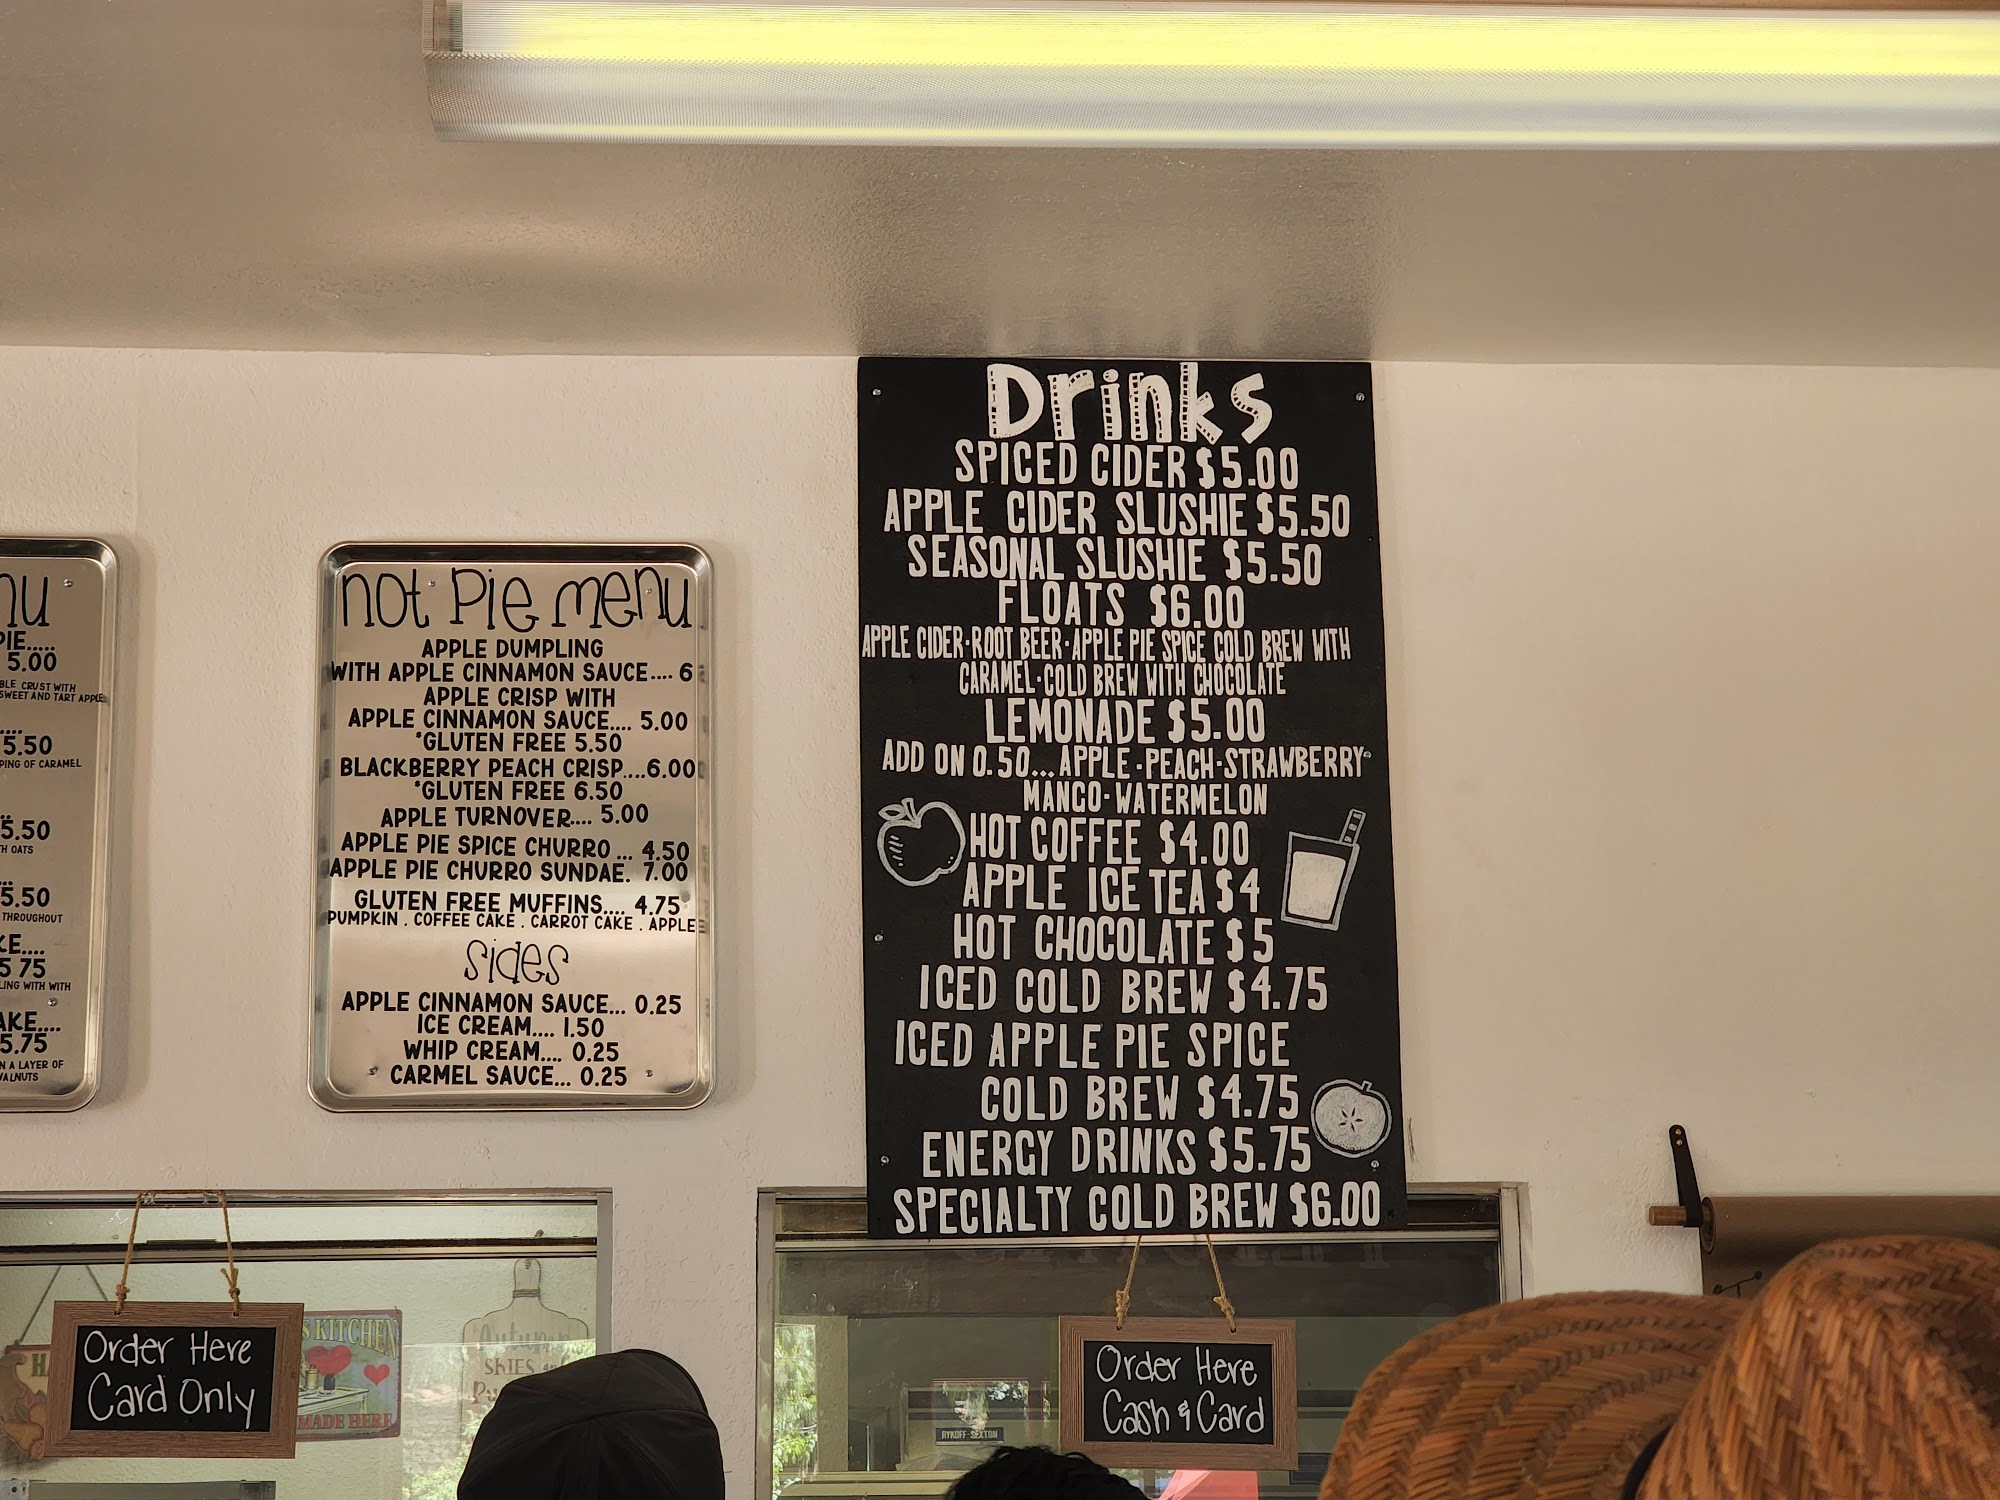 PIE.....
5.00
BLE CRUST WITH
SWEET AND TART APPLE
5.50
PING OF CARAMEL
5.50
TH OATS
5.50
THROUGHOUT
KE....
5 75
LING WITH WITH
AKE....
5.75
N A LAYER OF
WALNUTS
not Pie menu
APPLE DUMPLING
WITH APPLE CINNAMON SAUCE.... 6
APPLE CRISP WITH
APPLE CINNAMON SAUCE.... 5.00
*GLUTEN FREE 5.50
BLACKBERRY PEACH CRISP....6.00
*GLUTEN FREE 6.50
APPLE TURNOVER.... 5.00
APPLE PIE SPICE CHURRO ... 4.50
APPLE PIE CHURRO SUNDAE. 7.00
GLUTEN FREE MUFFINS.... 4.75
PUMPKIN . COFFEE CAKE . CARROT CAKE . APPLE
sides
APPLE CINNAMON SAUCE... 0.25
ICE CREAM.... 1.50
WHIP CREAM.... 0.25
CARMEL SAUCE... 0.25
Drinks
SPICED CIDER $5.00
APPLE CIDER SLUSHIE $5.50
SEASONAL SLUSHIE $5.50
FLOATS $6.00
APPLE CIDER·ROOT BEER·APPLE PIE SPICE COLD BREW WITH
CARAMEL·COLD BREW WITH CHOCOLATE
LEMONADE $5.00
ADD ON 0.50... APPLE-PEACH-STRAWBERRY
MANGO-WATERMELON
HOT COFFEE $4.00
APPLE ICE TEA $4
HOT CHOCOLATE $5
ICED COLD BREW $4.75
ICED APPLE PIE SPICE
COLD BREW $4.75
ENERGY DRINKS $5.75
SPECIALTY COLD BREW $6.00
Order Here
Card Only
S KITCHEN
MADE HERE
Autumn
SKIES and
Order Here
Cash & Card
RYKOFF-SEXTON